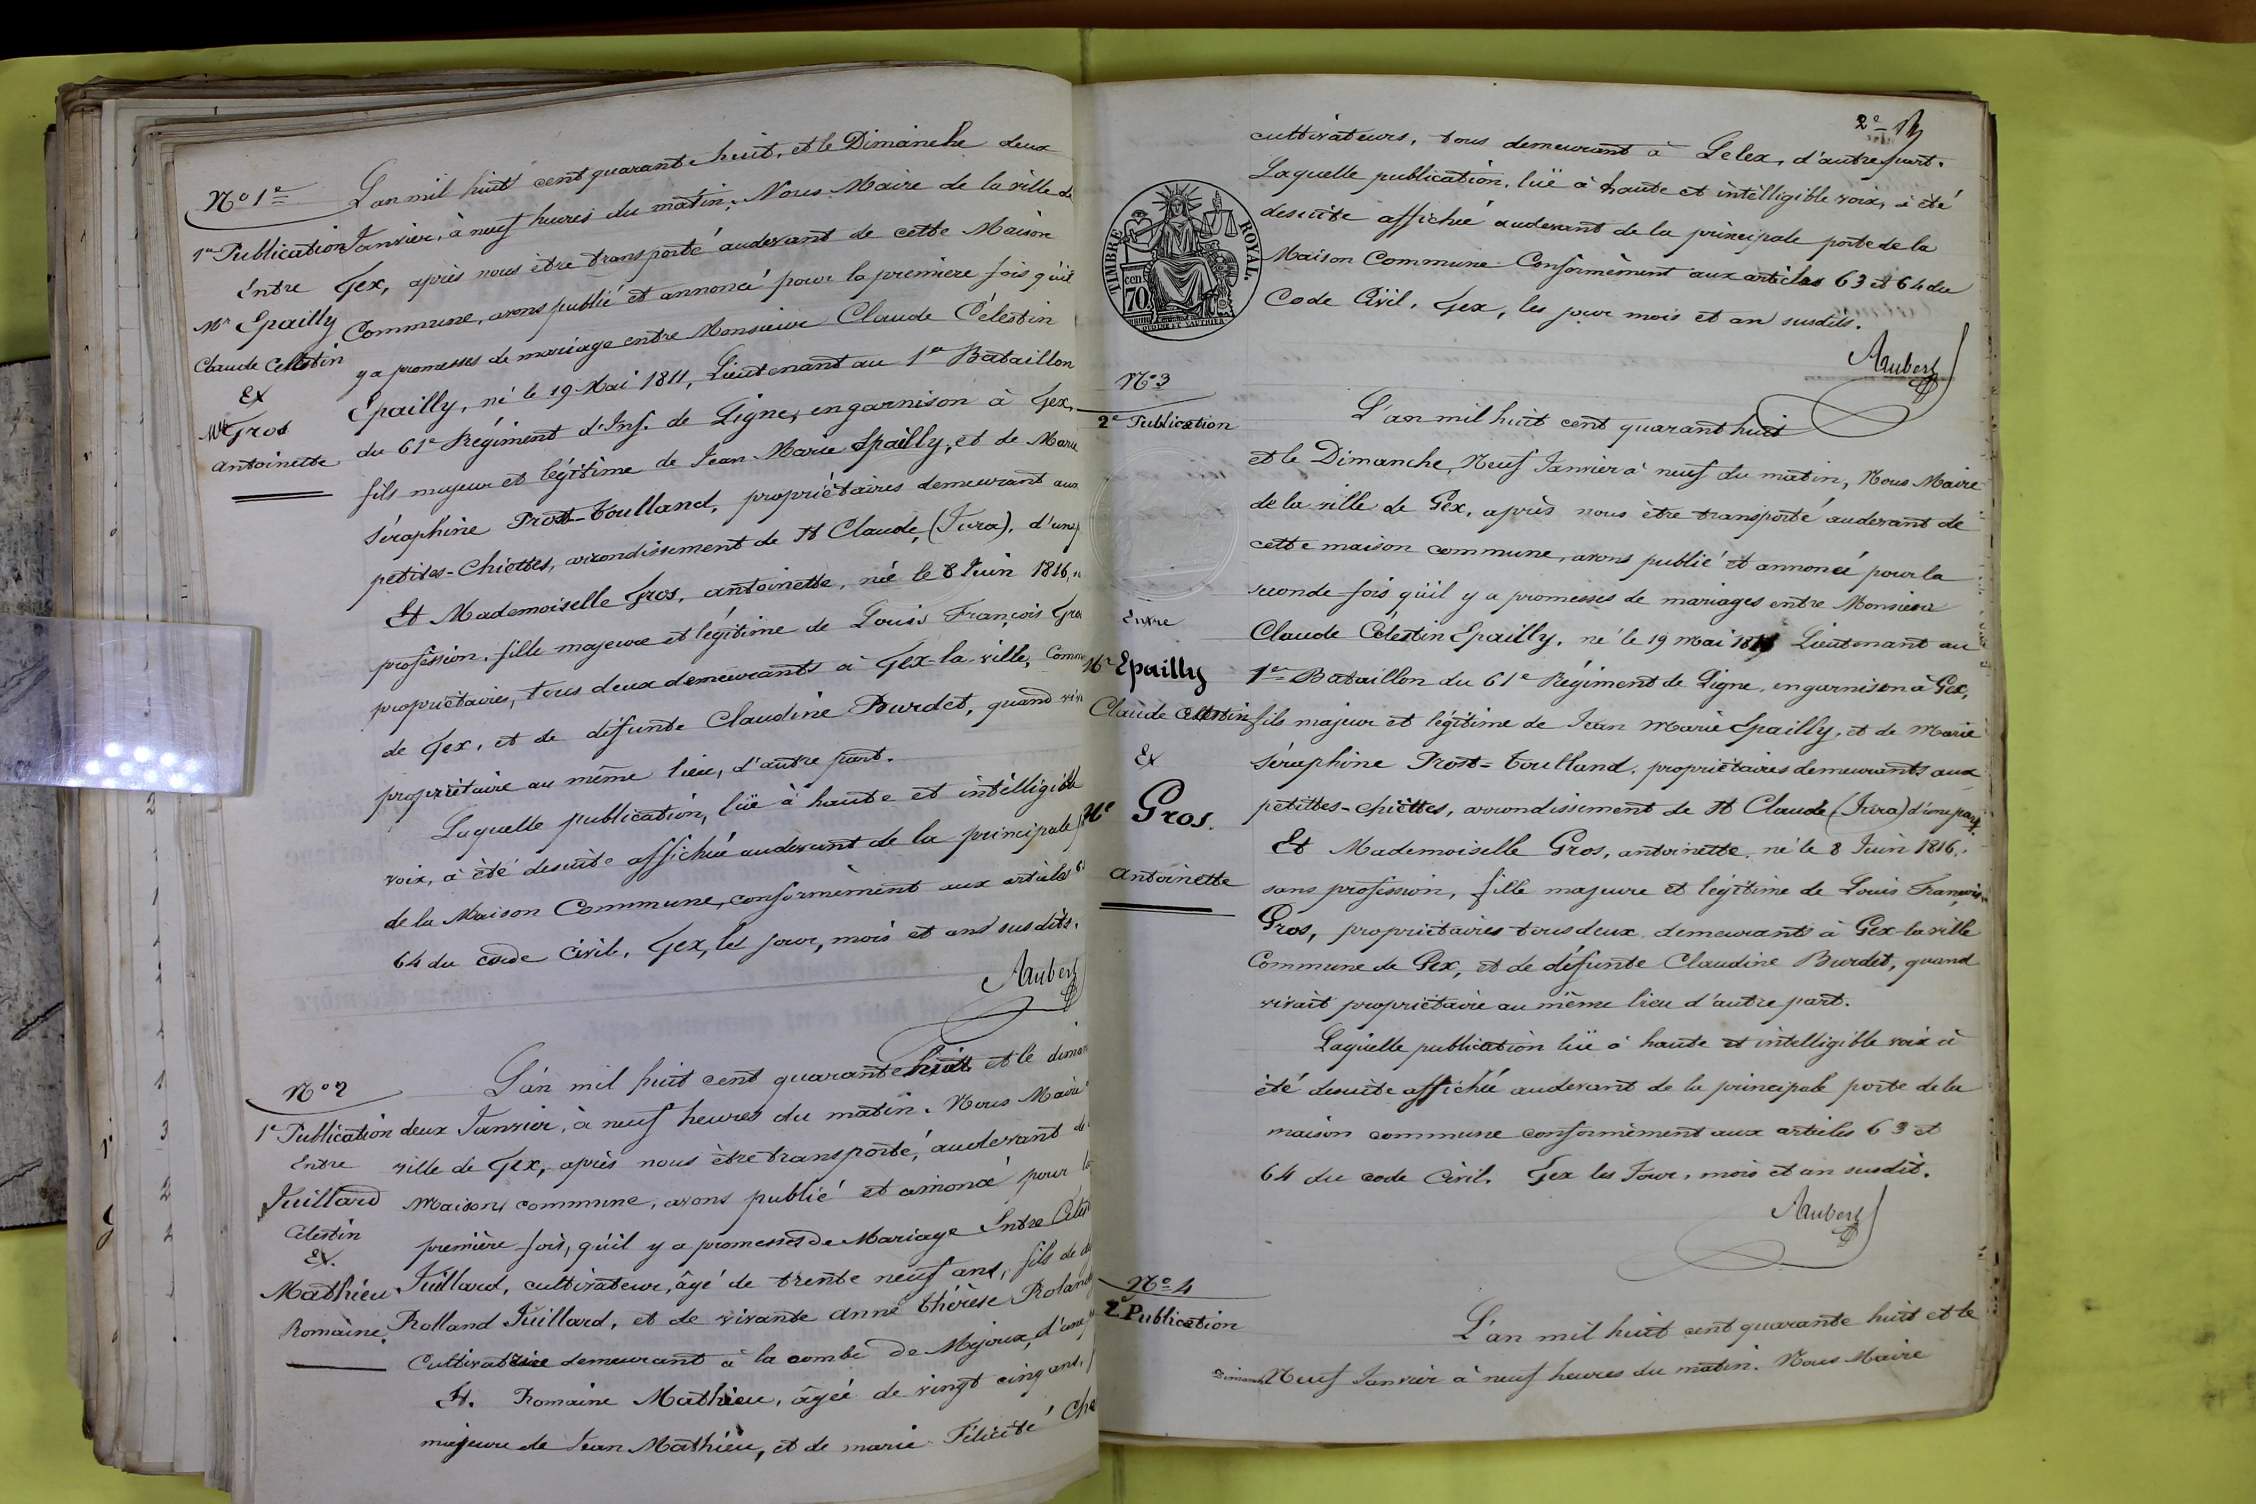 N° 1er
1re Publication
Entre
Mr Epailly
Claude Celestin
Et
Mlle Gros
antoinette
L'an mil huit cent quarante huit, et le Dimanche deux
Janvier, à neuf heures du matin, Nous Maire de la ville de
Gex, après nous être transporté audevant de cette Maison
Commune, avons publié et annoncé pour la premiere fois qu'il
y a promesses de mariage entre Monsieur Claude Célestin
Epailly, né le 19 Mai 1811, Lieutenant au 1er Bataillon
du 61e Régiment d'Inf. de Ligne, en garnison à Gex,
fils majeur et légitime de Jean Marie Epailly, et de Marie
Séraphine Prost-Toulland, propriétaires demeurant aux
petites-Chiettes, arrondissement de St Claude, (Jura), d'une
Et Mademoiselle Gros, antoinette, né le 8 Juin 1816,
profession, fille majeure et légitime de Louis François Gros
propriétaires, tous deux demeurants à Gex-la-ville, Comm
de Gex, et de défunte Claudine Burdet, quand viv
propriétaire au même lieu, d'autre part.
Laquelle publication, lüe à haute et intélligible
voix, à été desuite affichée audevant de la principale
de la Maison Commune, conformèment aux articles 6
64 du code Civil. Gex, les jour, mois et ans susdits.
Aubert
N° 2
1e Publication
Entre
Juillard
Célestin
Et.
Mathieu
Romaine.
L'an mil huit cent quarante huit et le diman
deux Janvier, à neuf heures du matin. Nous Maire
ville de Gex, après nous être transporté, audevant de
maison commune, avons publié et annoncé pour la
première fois, qu'il y a promesses de Mariage Entre Célest
Juillard, cultivateur, âgé de trente neuf ans, fils de
Rolland Juillard, et de vivante anne thérèse Roland
Cultivatrice demeurant à la combe de Mijoux, d'une
Et. Romaine Mathieu, âgée de vingt cinq ans,
majeure de Jean Mathieu, et de marie Félicité
2e
cultivateurs, tous demeurant à Lelex, d'autre part.
Laquelle publication, lüe à haute et intélligible voix, à été
desuite affichée audevant de la principale porte de la
Maison Commune Conformèment aux articles 63 et 64 du
Code Civil. Gex, les jour mois et an susdits.
Aubert
TIMBRE ROYAL.
70 cen
N° 3
2e Publication
Entre
Mr Epailly
Claude Celestin
Et
Mlle Gros.
antoinette
L'an mil huit cent quarant huit
et le Dimanche, Neuf Janvier à neuf du matin, Nous Maire
de la ville de Gex, après nous être transporté audevant de
cette maison commune, avons publié et annoncé pour la
seconde fois qu'il y a promesses de mariages entre Monsieur
Claude Célestin Epailly, né le 19 mai 1811 Lieutenant au
1er Bataillon du 61e Régiment de Ligne, en garnison à Gex,
fils majeur et légitime de Jean Marie Epailly, et de Marie
Séraphine Prost-Toulland, propriétaires demeurants aux
petittes-chiettes, arrondissement de St Claude (Jura) d'une part,
Et Mademoiselle Gros, antoinette, né le 8 Juin 1816,
sans profession, fille majeure et légitime de Louis François
Gros, propriétaires tous deux demeurants à Gex-la ville
Commune de Gex, et de défunte Claudine Burdet, quand
vivait propriétaire au même lieu d'autre part.
Laquelle publication lüe à haute et intelligible voix à
été desuite affichée audevant de la principale porte de la
maison commune conformèment aux articles 63 et
64 du code Civil. Gex les Jour, mois et an susdit.
Aubert
N° 4
2e Publication
L'an mil huit cent quarante huit et le
Dimanche Neuf Janvier à neuf heures du matin. Nous Maire